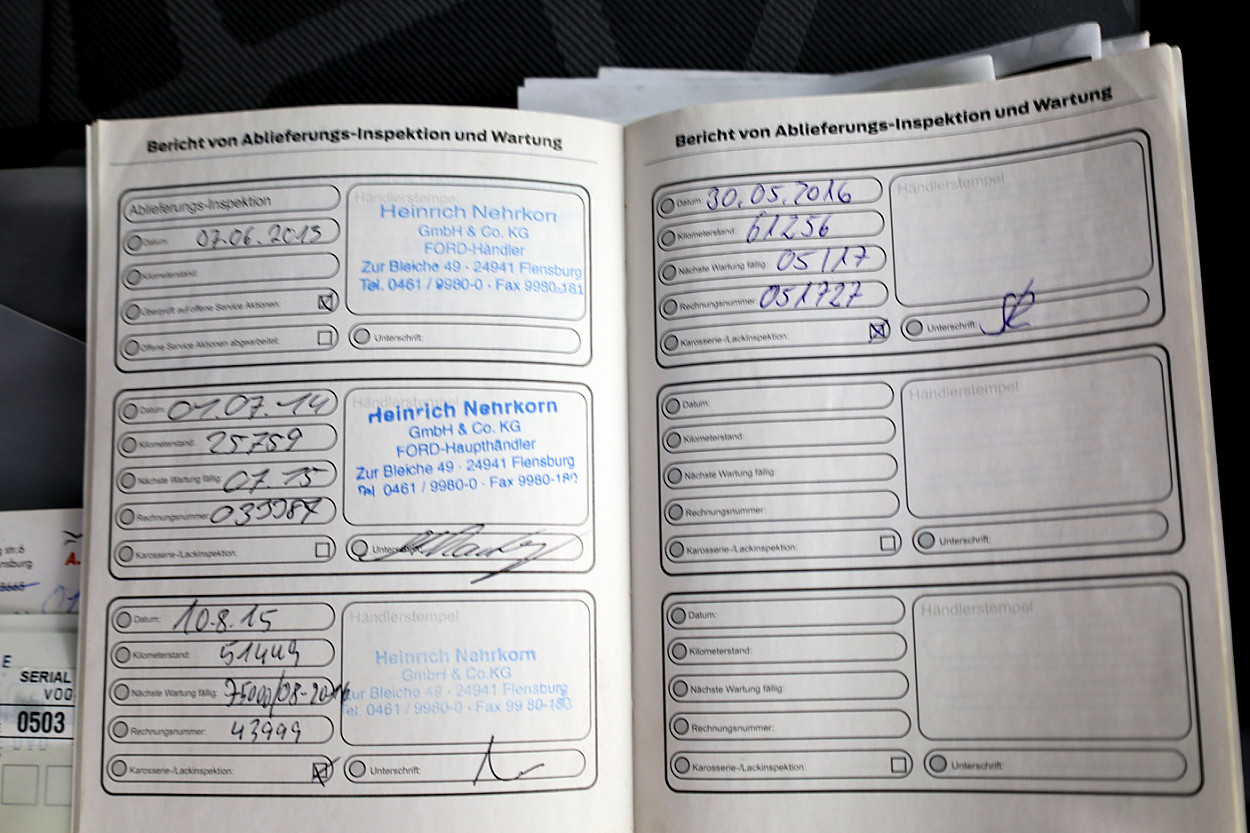 Bericht von Ablieferungs-Inspektion und Wartung
Ablieferungs-Inspektion
Datum: 07.06.2013
Kilometerstand:
Überprüft auf offene Service Aktionen:
Offene Service Aktionen abgearbeitet:
Händlerstempel
Heinrich Nehrkorn
GmbH & Co. KG
FORD-Händler
Zur Bleiche 49 · 24941 Flensburg
Tel. 0461 / 9980-0 · Fax 9980-181
Unterschrift:
Datum: 01.07.14
Kilometerstand: 25759
Nächste Wartung fällig: 07.15
Rechnungsnummer: 035987
Karosserie-/Lackinspektion:
Händlerstempel
Heinrich Nehrkorn
GmbH & Co. KG
FORD-Haupthändler
Zur Bleiche 49 · 24941 Flensburg
Tel. 0461 / 9980-0 · Fax 9980-180
Unterschrift:
Datum: 10.8.15
Kilometerstand: 51449
Nächste Wartung fällig: 75000/08-2016
Rechnungsnummer: 43999
Karosserie-/Lackinspektion:
Händlerstempel
Heinrich Nehrkorn
GmbH & Co.KG
Zur Bleiche 49 - 24941 Flensburg
Tel. 0461 / 9980-0 · Fax 99 80-180
Unterschrift:
Bericht von Ablieferungs-Inspektion und Wartung
Datum: 30.05.2016
Kilometerstand: 61256
Nächste Wartung fällig: 05/17
Rechnungsnummer: 051727
Karosserie-/Lackinspektion:
Händlerstempel
Unterschrift:
Datum:
Kilometerstand:
Nächste Wartung fällig:
Rechnungsnummer:
Karosserie-/Lackinspektion:
Händlerstempel
Unterschrift:
Datum:
Kilometerstand:
Nächste Wartung fällig:
Rechnungsnummer:
Karosserie-/Lackinspektion:
Händlerstempel
Unterschrift:
str.6
nsburg
A.
E
SERIAL
VOO
0503